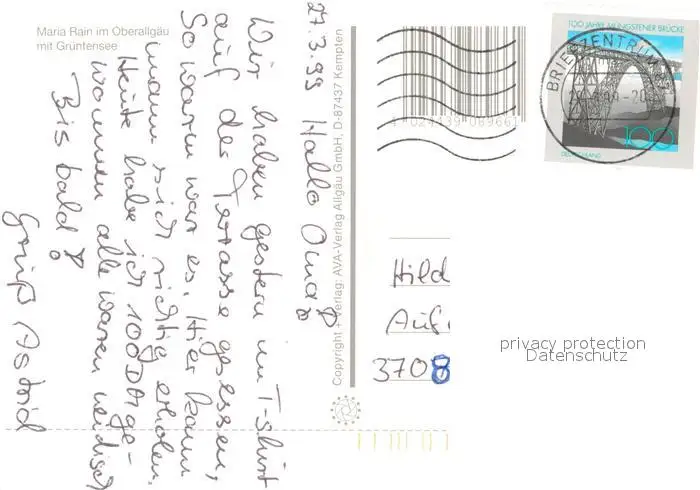 Maria Rain im Oberallgäu
mit Grüntensee
27.3.99 Hallo Oma!
Wir haben gestern im T-shirt
auf der Terrasse gesessen,
so warm war es. Hier kann
mann sich richtig erholen.
Heute habe ich 100 DM ge-
wonnen alle waren neidisch
Bis bald!
Gruß Astrid
Copyright + Verlag: AVA-Verlag Allgäu GmbH, D-87437 Kempten
4 024439 089661
100 JAHRE MÜNGSTENER BRÜCKE
100
DEUTSCHLAND
BRIEFZENTRUM
Hild
Auf
3708
privacy protection
Datenschutz